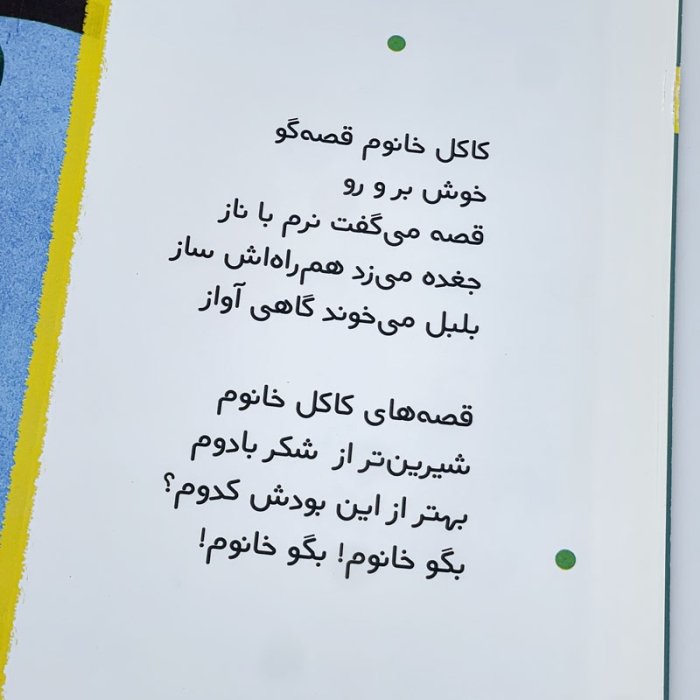 کاکل خانوم قصه‌گو
خوش بر و رو
قصه می‌گفت نرم با ناز
جغده می‌زد هم‌راه‌اش ساز
بلبل می‌خوند گاهی آواز
قصه‌های کاکل خانوم
شیرین‌تر از شکر بادوم
بهتر از این بودش کدوم؟
بگو خانوم! بگو خانوم!